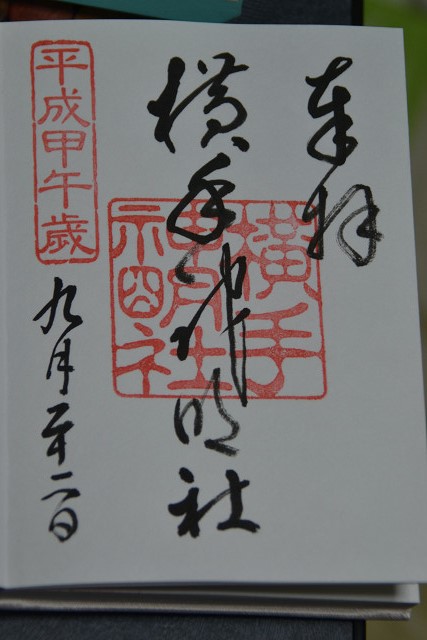 奉拝
横手神明社
横手
神明社
平成甲午歳
九月二十二日